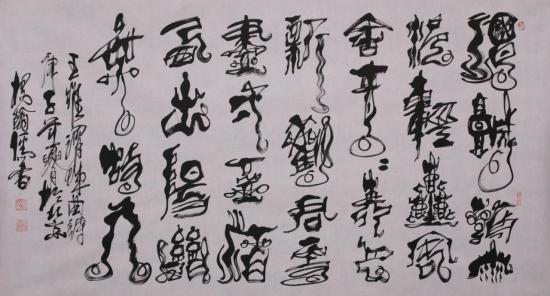 渭城朝雨
浥輕塵客
舍青〻柳色
新勸君更
盡一杯酒
西出陽關
無故人
王維渭城曲
庚子年月於北京
楊書